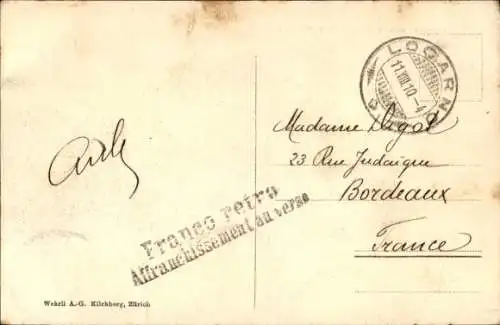 LOCARNO
11.VIII.10.-4
Madame Digot
23 Rue Judaïque
Bordeaux
France
Franco retro
Affranchissement au verso
Wehrli A.-G. Kilchberg, Zürich